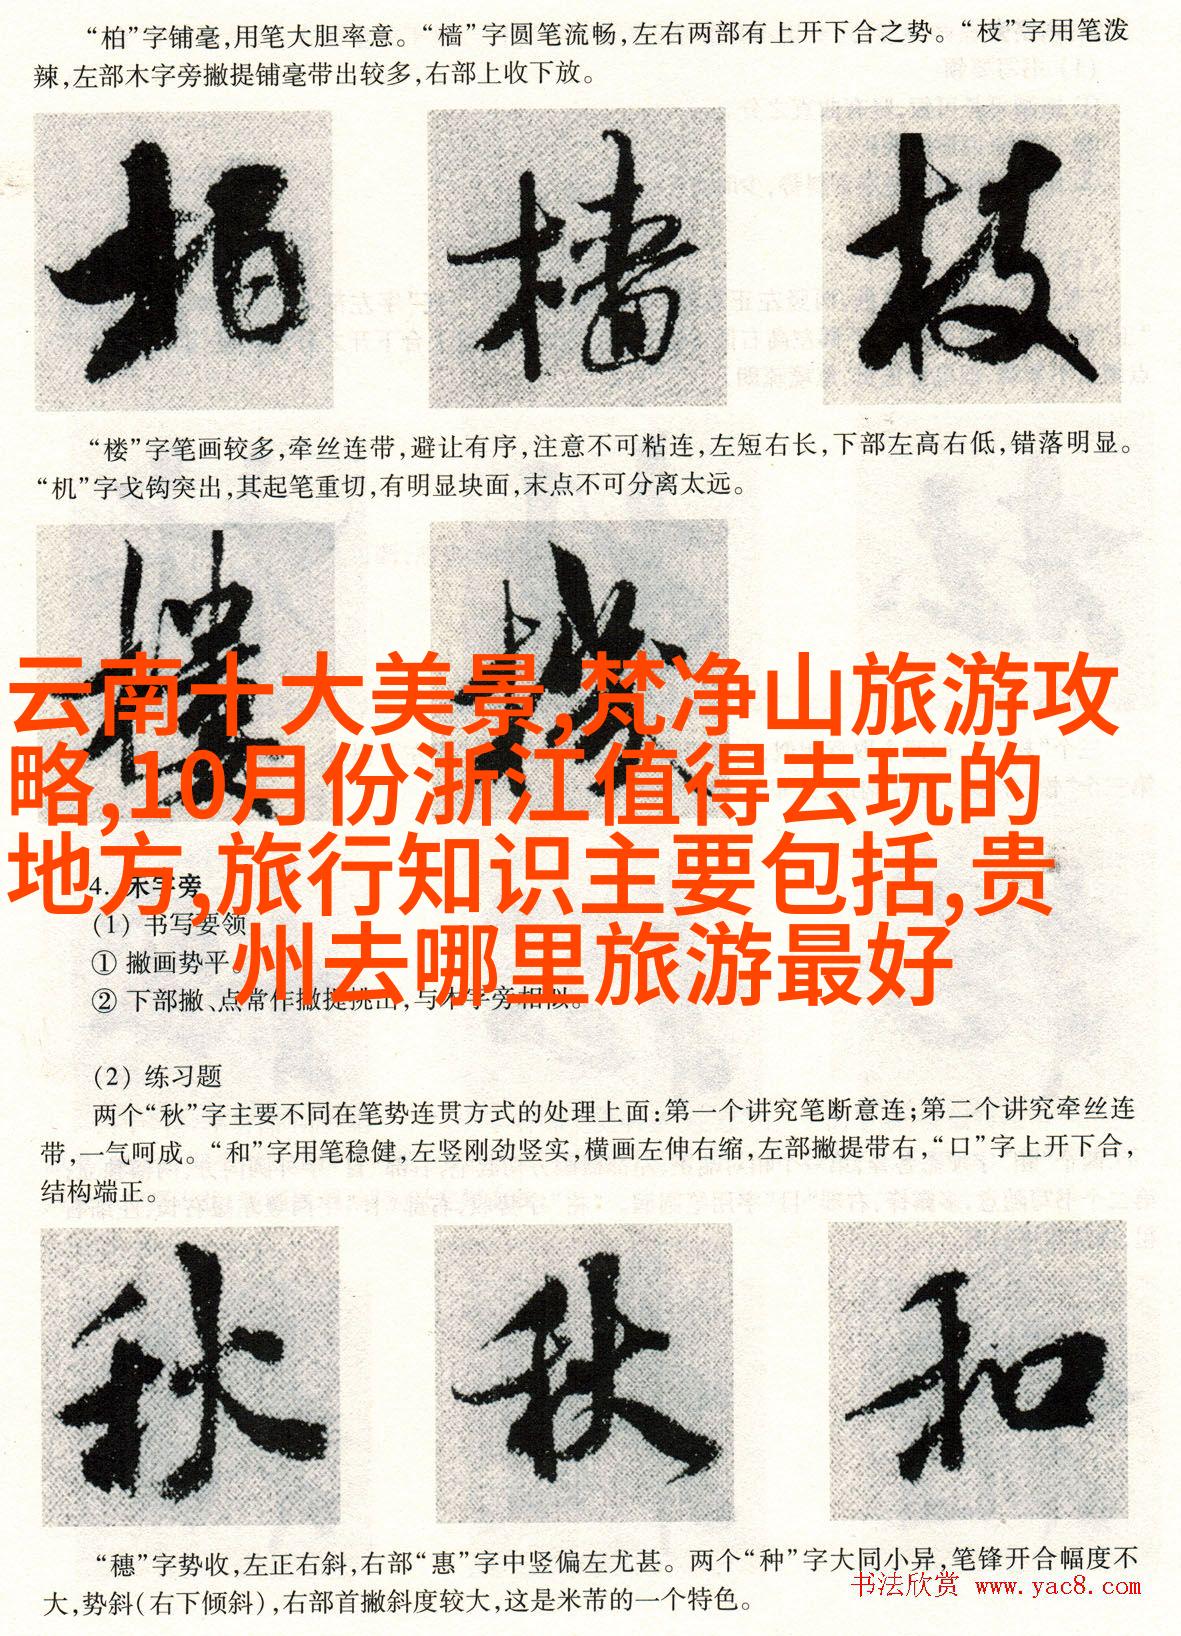 “柏”字铺毫，用笔大胆率意。“樯”字圆笔流畅，左右两部有上开下合之势。“枝”字用笔泼
辣，左部木字旁撇提铺毫带出较多，右部上收下放。
柏 樯 枝
“楼”字笔画较多，牵丝连带，避让有序，注意不可粘连，左短右长，下部左高右低，错落明显。
“机”字戈钩突出，其起笔重切，有明显块面，末点不可分离太远。
楼 機
云南十大美景,梵净山旅游攻
略,10月份浙江值得去玩的
地方,旅行知识主要包括,贵
州去哪里旅游最好
4. 禾字旁
(1) 书写要领
① 撇画势平。
② 下部撇、点常作撇提挑出，与木字旁相似。
(2) 练习题
两个“秋”字主要不同在笔势连贯方式的处理上面：第一个讲究笔断意连；第二个讲究牵丝连
带，一气呵成。“和”字用笔稳健，左竖刚劲竖实，横画左伸右缩，左部撇提带右，“口”字上开下合，
结构端正。
秋 秋 和
“穗”字势收，左正右斜，右部“惠”字中竖偏左尤甚。两个“种”字大同小异，笔锋开合幅度不
大，势斜(右下倾斜)，右部首撇斜度较大，这是米芾的一个特色。
书法欣赏 www.yac8.com